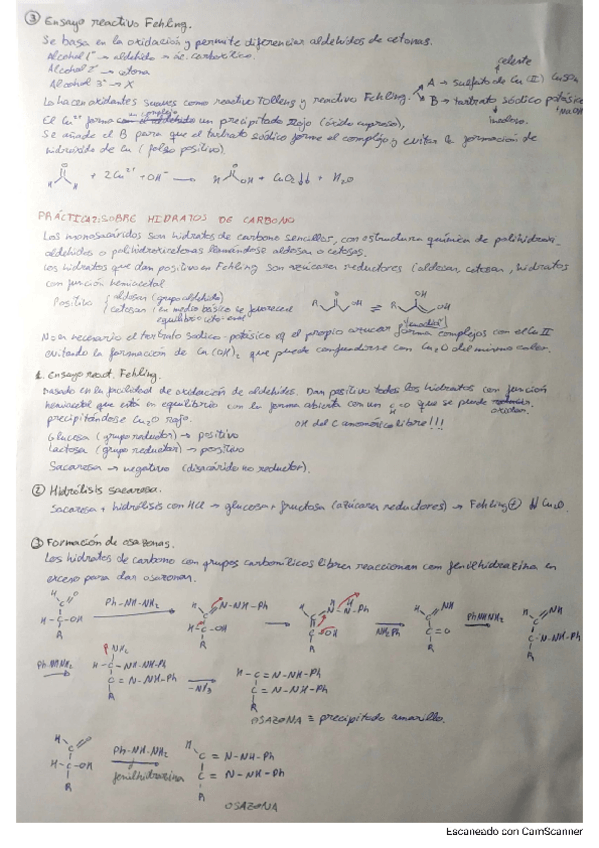 ③ Ensayo reactivo Fehling.
Se basa en la oxidación y permite diferenciar aldehidos de cetonas.
Alcohol 1º → aldehido → ác. carboxílico.
celeste
Alcohol 2º → cetona
A → sulfato de Cu (II) CuSO4
Alcohol 3º → X
Lo hacen oxidantes suaves como reactivo Tollens y reactivo Fehling.
B → tartrato sódico potásico + NaOH
incoloro.
El Cu²⁺ forma un complejo un precipitado rojo (óxido cuproso),
Se añade el B para que el tartrato sódico forme el complejo y evitar la formación de
hidróxido de Cu (falso positivo).
H + 2Cu²⁺ + OH⁻ → H OH + CuO2↓↓ + H2O
PRÁCTICA 2: SOBRE HIDRATOS DE CARBONO
Los monosacáridos son hidratos de carbono sencillos, con estructura química de polihidroxi-
aldehidos o polihidroxicetonas llamándose aldosas o cetosas.
Los hidratos que dan positivo en Fehling son azúcares reductores (aldosas, cetosas, hidratos
con función hemiacetal
Positivo { aldosas (grupo aldehido)
cetosas (en medio básico se favorece el
equilibrio ceto-enol
R OH ⇌ R OH OH
"enodiol"
No es necesario el tartrato sódico-potásico xq el propio azúcar forma complejos con el Cu II
evitando la formación de Cu(OH)2 que puede confundirse con Cu2O del mismo color.
1. Ensayo react. Fehling.
Basado en la facilidad de oxidación de aldehidos. Dan positivo todos los hidratos con función
hemiacetal que está en equilibrio con la forma abierta con un C=O que se puede oxidar.
H
precipitándose Cu2O rojo.
OH del C anomérico libre!!!
Glucosa (grupo reductor) → positivo
Lactosa (grupo reductor) → positivo
Sacarosa → negativo (disacárido no reductor).
② Hidrólisis sacarosa.
Sacarosa + hidrólisis con HCl → glucosa + fructosa (azúcares reductores) → Fehling ⊕ ↓↓ Cu2O.
③ Formación de osazonas.
Los hidratos de carbono con grupos carbonílicos libres reaccionan con fenilhidrazina en
exceso para dar osazonas.
H C O
H-C-OH
R
Ph-NH-NH2
H C=N-NH-Ph
H-C-OH
R
H C=N-N-Ph
C OH
R
NH2Ph
H C=NH
C=O
R
PhNHNH2
H C=NH
C=N-NH-Ph
R
Ph-NHNH2
NH2
H-C-NH-NH-Ph
C=N-NH-Ph
R
-NH3
H-C=N-NH-Ph
C=N-NH-Ph
R
OSAZONA = precipitado amarillo.
H C O
H-C-OH
R
Ph-NH-NH2
fenilhidrazina
H C=N-NH-Ph
C=N-NH-Ph
R
OSAZONA
Escaneado con CamScanner